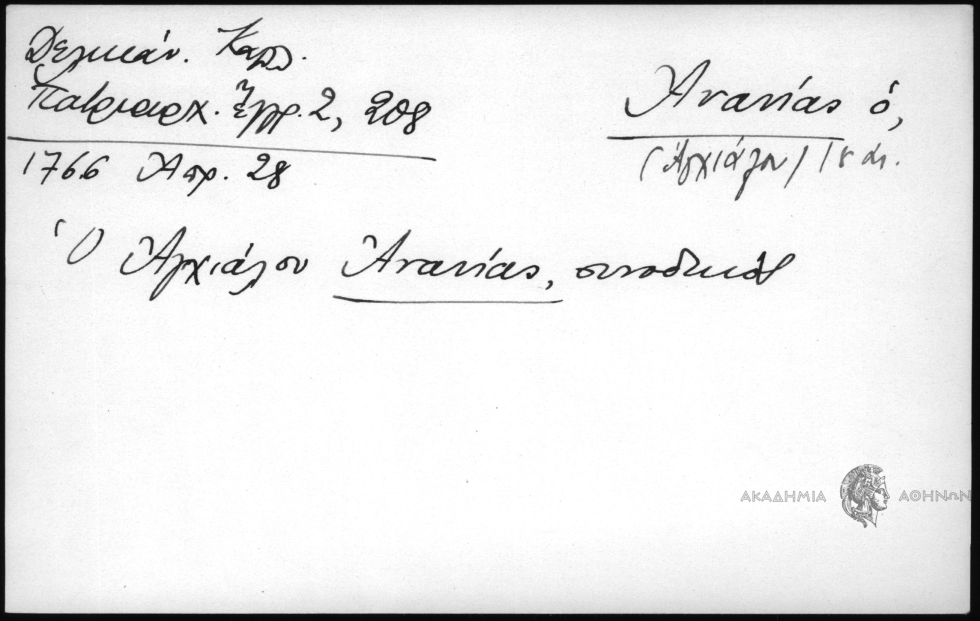 Δελικάν. Καλλ.
Πατριαρχ. Ἔγγρ. 2, 208
1766 Απρ. 28
Ἀνανίας ὁ,
(Ἀγχιάλου) 18 αι.
Ὁ Ἀγχιάλου Ἀνανίας, συνοδικός
ΑΚΑΔΗΜΙΑ ΑΘΗΝΩΝ